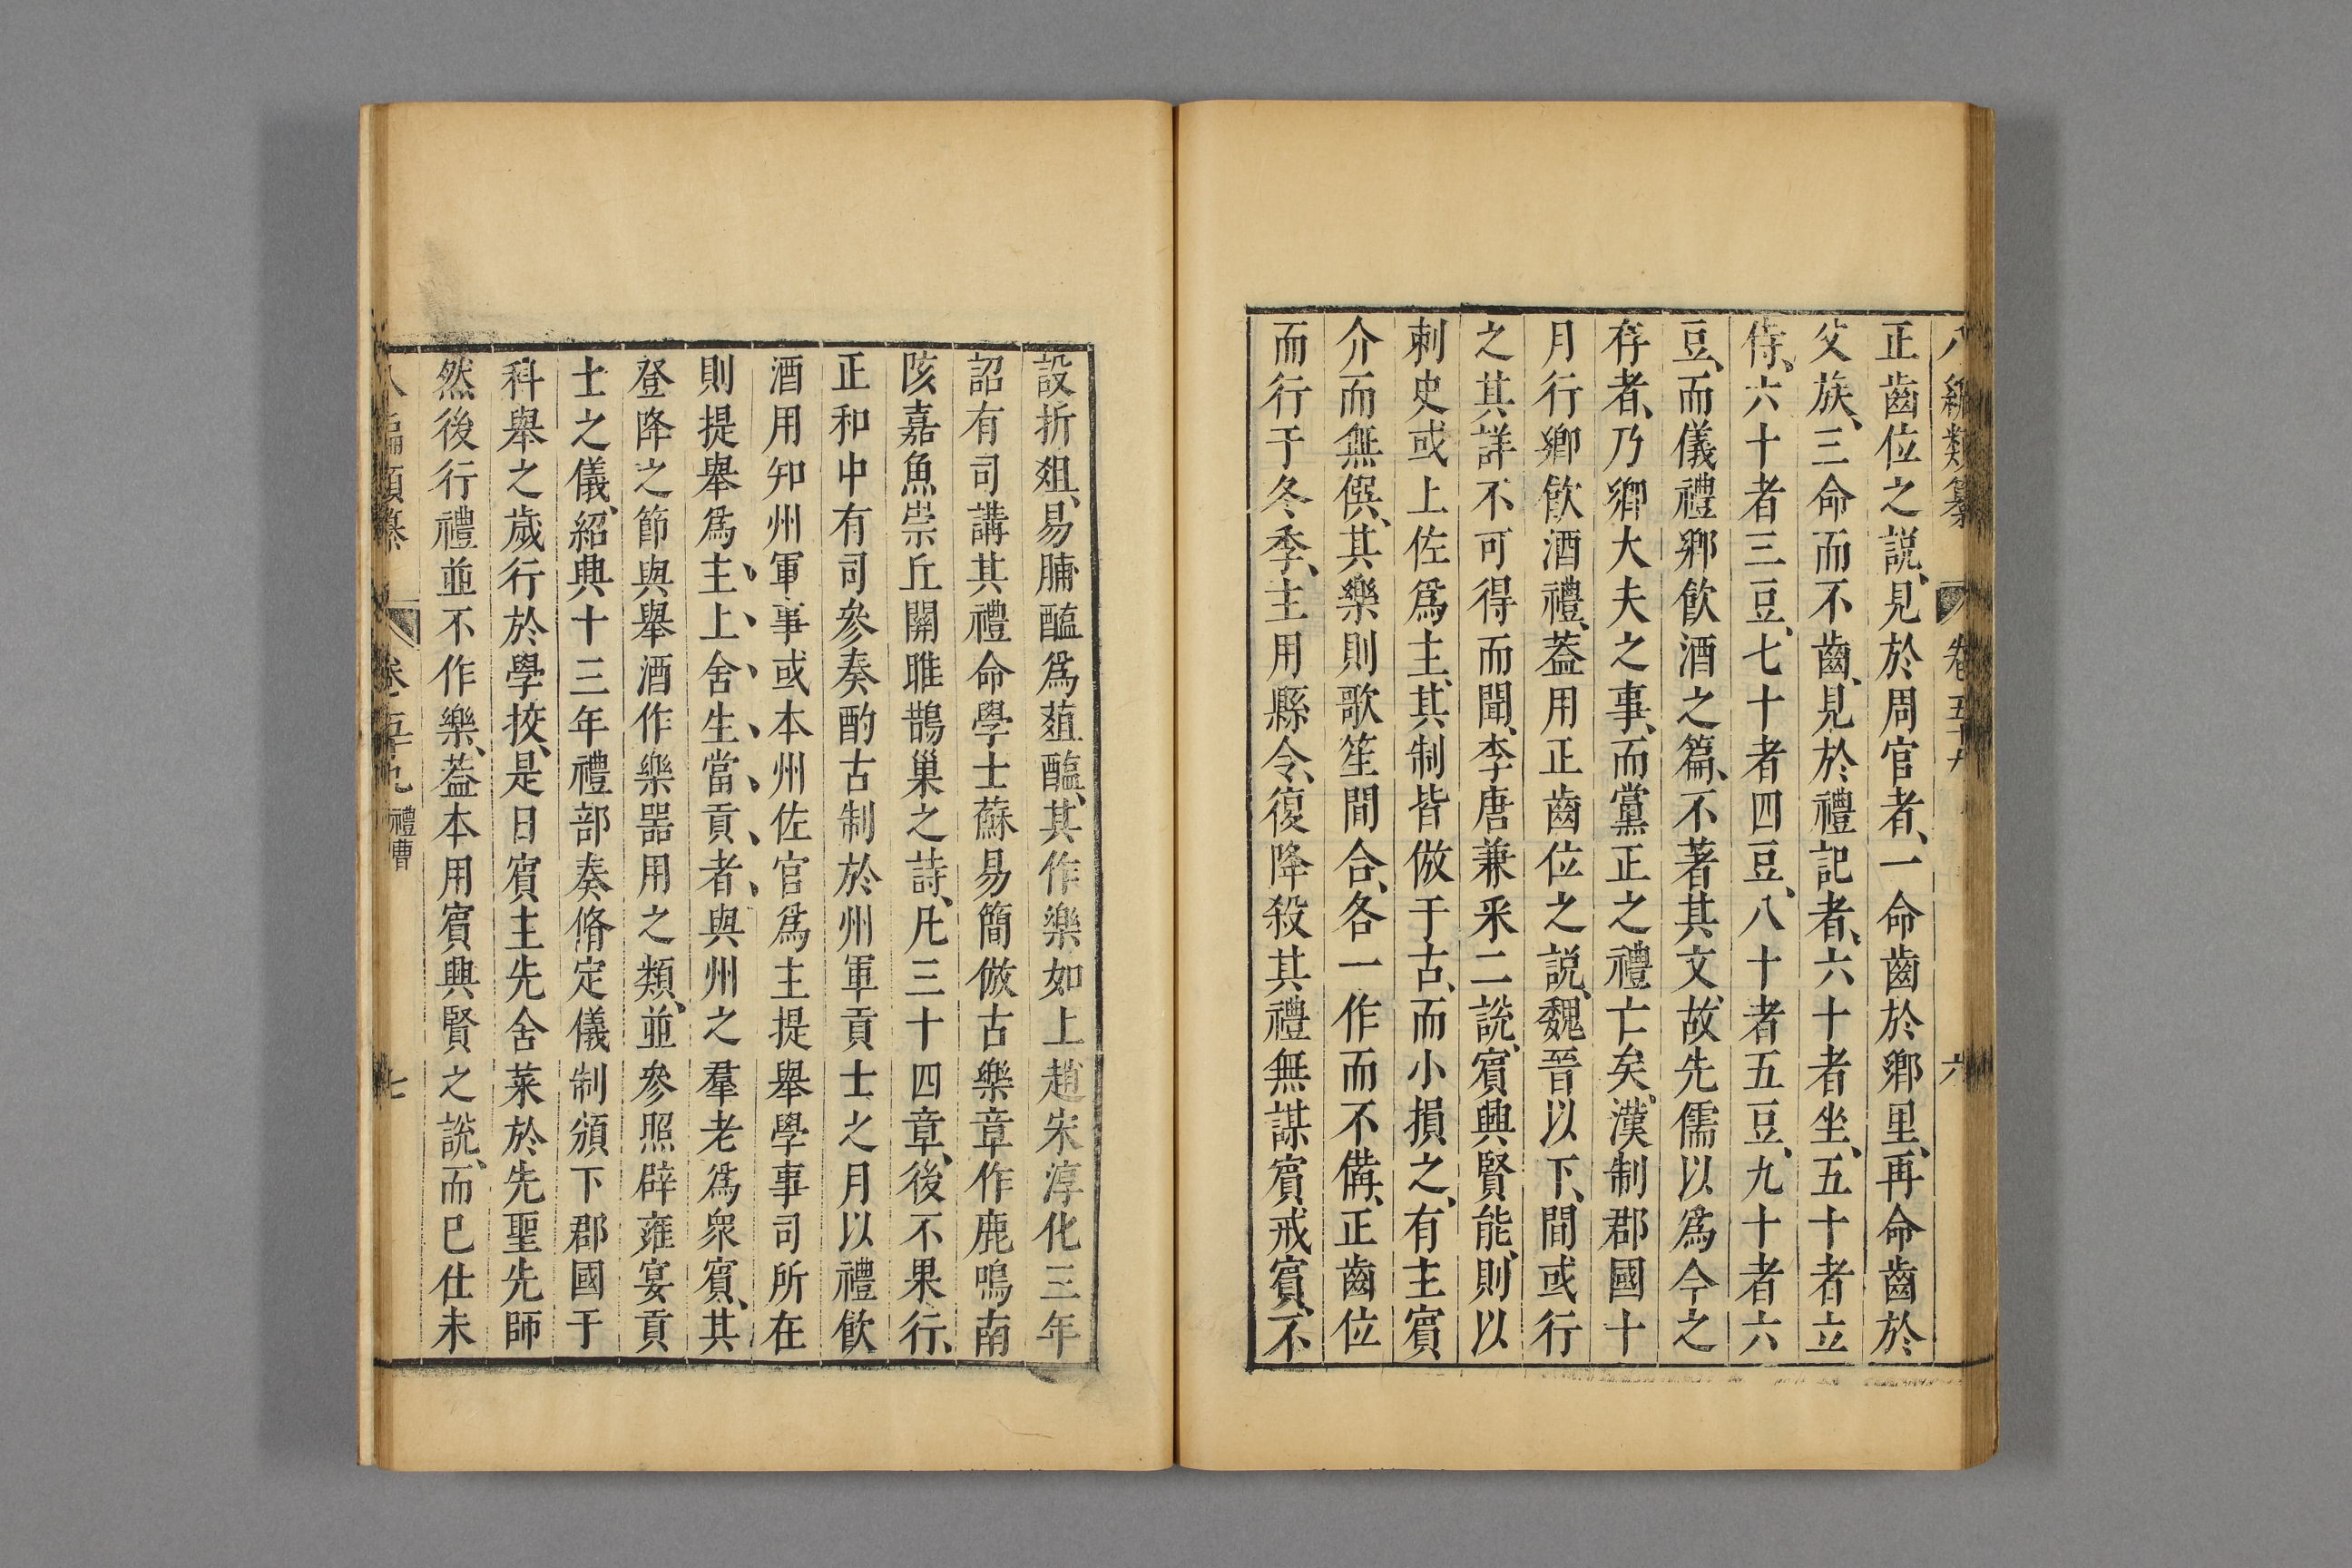 八編類纂 卷五十九 六
正齒位之説、見於周官者、一命齒於鄉里、再命齒於
父族、三命而不齒、見於禮記者、六十者坐、五十者立
侍、六十者三豆、七十者四豆、八十者五豆、九十者六
豆、而儀禮鄉飲酒之篇、不著其文、故先儒以爲今之
存者、乃鄉大夫之事、而黨正之禮亡矣、漢制郡國十
月行鄉飲酒禮、葢用正齒位之説、魏晉以下、間或行
之其詳不可得而聞、李唐兼采二説、賓興賢能、則以
刺史或上佐爲主、其制皆倣于古、而小損之、有主賓
介而無僎、其樂則歌笙間合、各一作而不備、正齒位
而行于冬季、主用縣令、復降殺其禮無謀賓戒賓、不
設折俎、易脯醢爲葅醢、其作樂如上、趙宋淳化三年
詔有司講其禮命學士蘇易簡倣古樂章作鹿鳴南
陔嘉魚崇丘關雎鵲巢之詩、凡三十四章、後不果行、
正和中有司參奏酌古制於州軍貢士之月以禮飲
酒用知州軍事或本州佐官爲主提舉學事司所在
則提舉爲主、上、舍、生、當、貢、者、與州之羣老爲衆賓、其
登降之節與舉酒作樂器用之類、並參照辟雍宴貢
士之儀、紹興十三年禮部奏脩定儀制頒下郡國于
科舉之歲行於學挍、是日賓主先舍菜於先聖先師
然後行禮並不作樂、葢本用賓興賢之説、而已仕未
八編類纂 卷五十九 禮曹 七